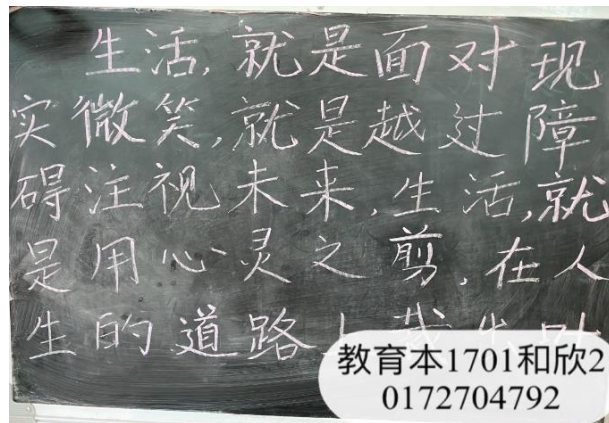 生活,就是面对现
实微笑,就是越过障
碍注视未来,生活,就
是用心灵之剪,在人
生的道路上
教育本1701和欣2
0172704792